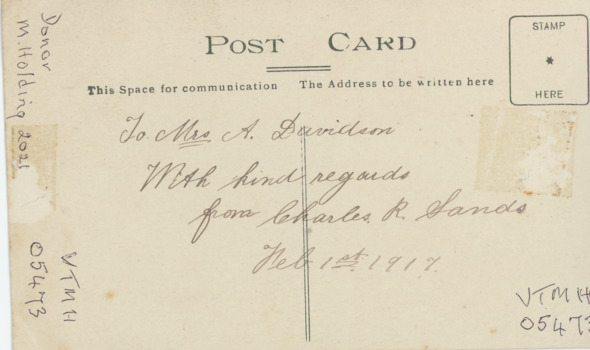 POST CARD
STAMP
*
HERE
This Space for communication The Address to be written here
To Mrs A. Davidson
With kind regards
from Charles. R. Sands
Feb 1st 1917.
Donor
M. Holding 2021
VTMH
05473
VTMH
05473